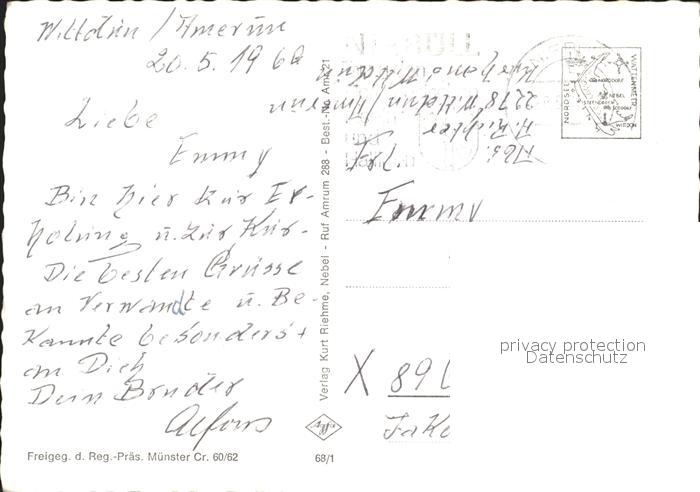 Wittdün / Amrum
20.5.1960
Liebe
Emmy
Bin hier zur Er-
holung u. zur Kur.
Die besten Grüsse
an Verwandte u. Be-
kannte besonders
an Dich
Dein Bruder
Alfons
Freigeg. d. Reg.-Präs. Münster Cr. 60/62
68/1
Verlag Kurt Riehme, Nebel - Ruf Amrum 288 - Best.-No. Am 21
Abs.
A. Richter
2278 Wittdün / Amrum
NORDSEE
WATTENMEER
NORDDORF
NEBEL
STEENODDE
SÜDDORF
WITTDÜN
Emmy
X 89
privacy protection
Datenschutz
Agfa